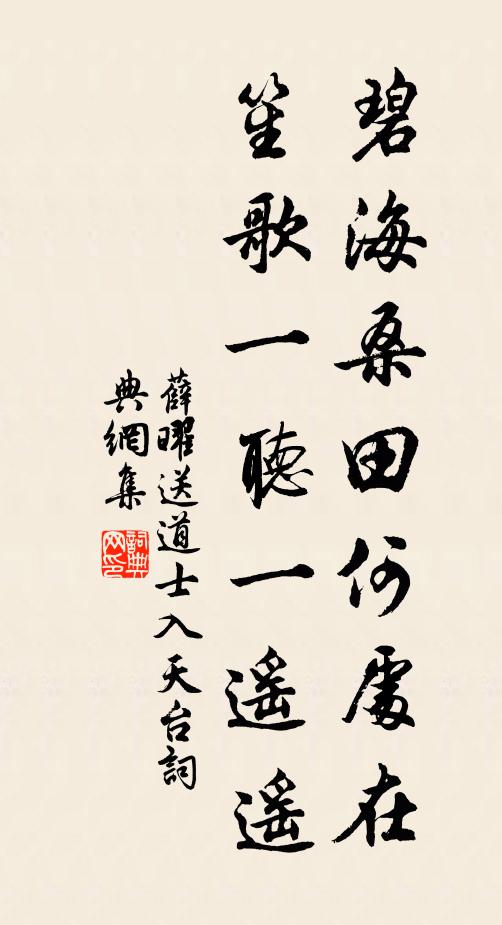 碧海桑田何處在
笙歌一聽一遥遥
薛曜送道士入天台詞
典網集
詞典
网印